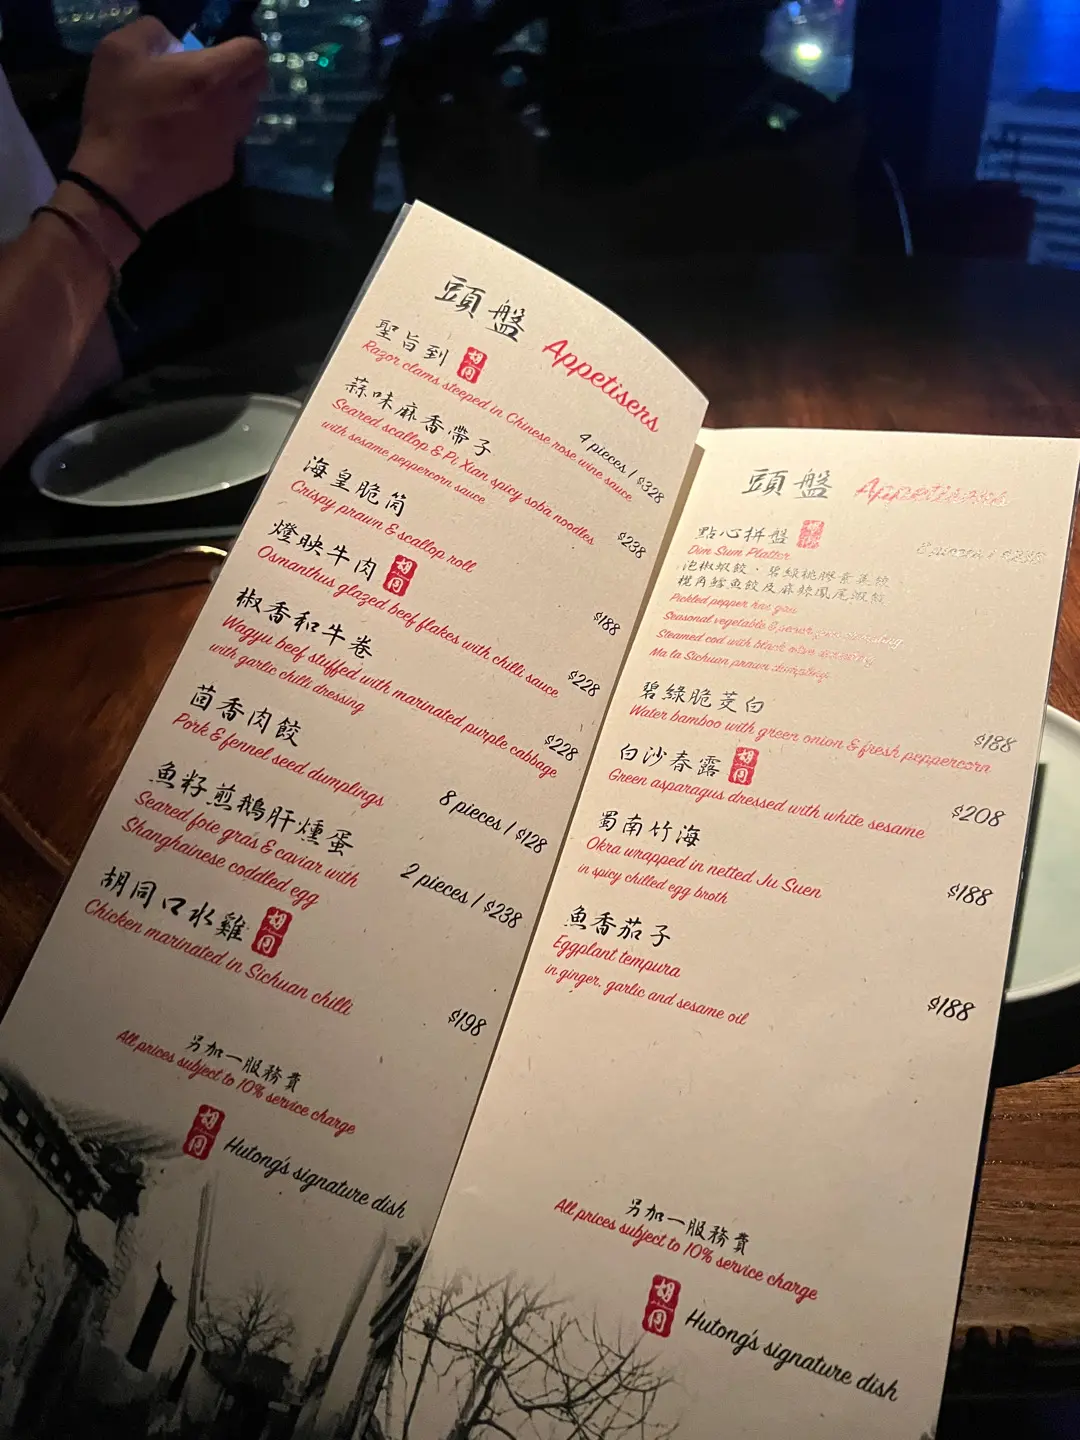 頭盤 Appetisers
聖旨到 胡同
Razor clams steeped in Chinese rose wine sauce
4 pieces / $328
蒜味麻香帶子
Seared scallop & Pi Xian spicy soba noodles
with sesame peppercorn sauce
$238
海皇脆筒
Crispy prawn & scallop roll
$188
燈映牛肉 胡同
Osmanthus glazed beef flakes with chilli sauce
$228
椒香和牛卷
Wagyu beef stuffed with marinated purple cabbage
with garlic chilli dressing
$228
茴香肉餃
Pork & fennel seed dumplings
8 pieces / $128
魚籽煎鵝肝燻蛋
Seared foie gras & caviar with
Shanghainese coddled egg
2 pieces / $238
胡同口水雞 胡同
Chicken marinated in Sichuan chilli
$198
另加一服務費
All prices subject to 10% service charge
胡同 Hutong's signature dish
頭盤 Appetisers
點心拼盤 胡同
Dim Sum Platter
8 pieces /
泡椒蝦餃、碧綠桃膠素蒸餃、
欖角鱈魚餃及麻辣鳳尾蝦餃
Pickled pepper har gau
Seasonal vegetable &
Steamed cod with black olive dumpling
Ma la Sichuan prawn dumplings
碧綠脆茭白
Water bamboo with green onion & fresh peppercorn
$188
白沙春露 胡同
Green asparagus dressed with white sesame
$208
蜀南竹海
Okra wrapped in netted Ju Suen
in spicy chilled egg broth
$188
魚香茄子
Eggplant tempura
in ginger, garlic and sesame oil
$188
另加一服務費
All prices subject to 10% service charge
胡同 Hutong's signature dish